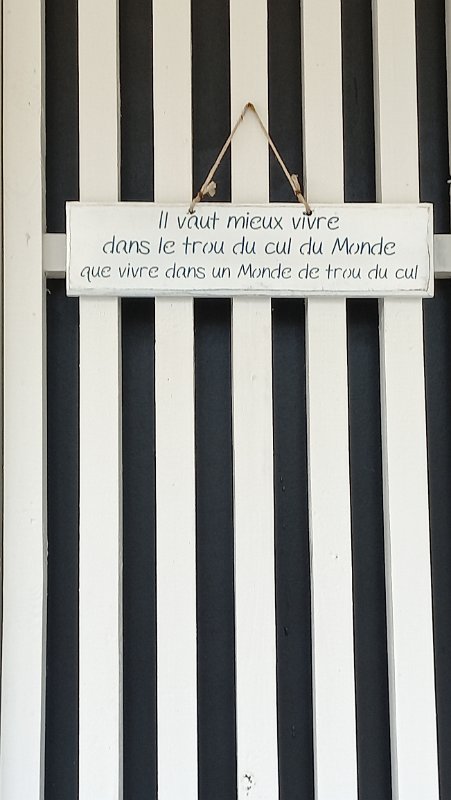 Il vaut mieux vivre
dans le trou du cul du Monde
que vivre dans un Monde de trou du cul